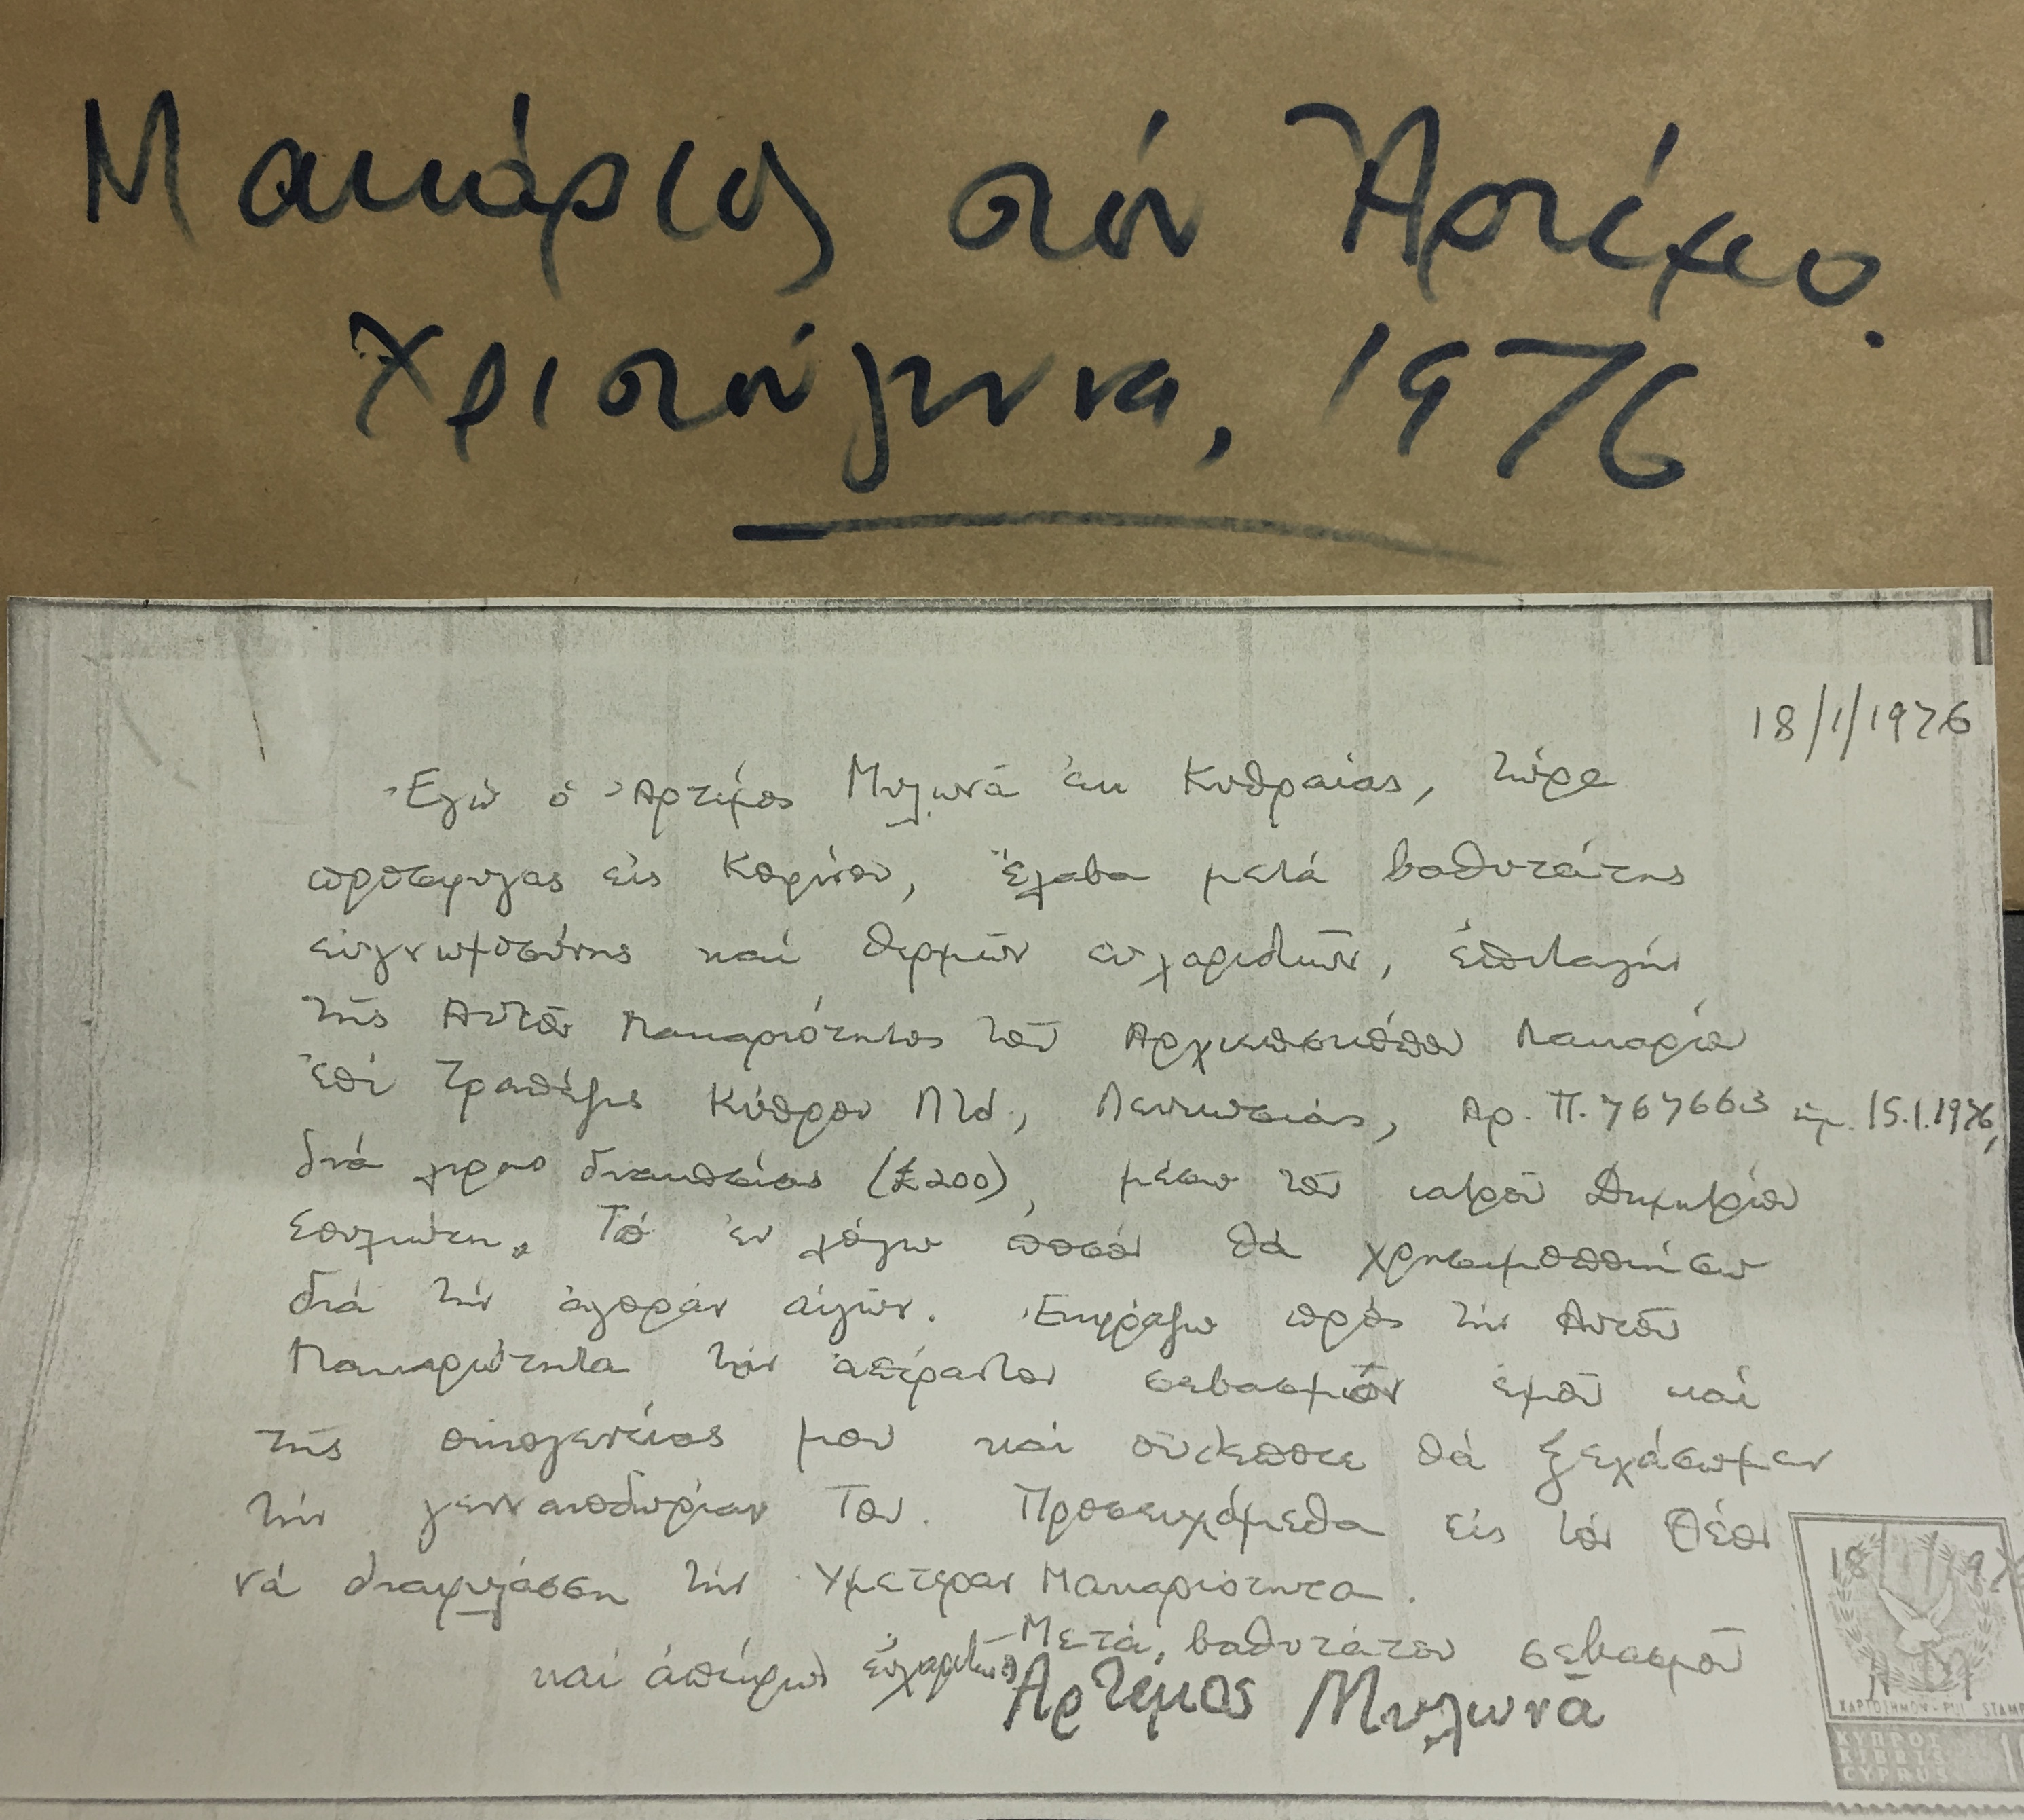 Μακάριος στόν Ἀρτέμιο.
Χριστούγεννα, 1976
18/1/1976
Ἐγώ ὁ Ἀρτέμος Μυλωνᾶ ἐκ Κυθραίας, τώρα
πρόσφυγας εἰς Κόρνον, ἔλαβα μετά βαθυτάτης
εὐγνωμοσύνης καί θερμῶν εὐχαριστιῶν, ἐπιταγήν
τῆς Αὐτοῦ Μακαριότητος τοῦ Ἀρχιεπισκόπου Μακαρίου
ἐπί Τραπέζης Κύπρου Λτδ., Λευκωσίας, Αρ. Π. 767663 ἡμ. 15.1.1976,
διά λίρας διακοσίας (£200), μέσω τοῦ ιατροῦ Δημητρίου
Σουλιώτη. Τό ἐν λόγω ποσόν θά χρησιμοποιήσω
διά τήν ἀγοράν αἰγῶν. Ἐκφράζω πρός τήν Αὐτοῦ
Μακαριότητα τόν ἀπέραντον σεβασμόν ἐμοῦ καί
τῆς οἰκογενείας μου καί οὐδέποτε θά ξεχάσωμεν
τήν γενναιοδωρίαν Του. Προσευχόμεθα εἰς τόν Θεόν
νά διαφυλάσση τήν Υμετέραν Μακαριότητα.
Μετά βαθυτάτου σεβασμοῦ
καί ἀπείρων εὐχαριστιῶν
Ἀρτέμος Μυλωνᾶ
18/1/197
ΧΑΡΤΟΣΗΜΟΝ - PUL STAMP
ΚΥΠΡΟΣ
KIBRIS
CYPRUS